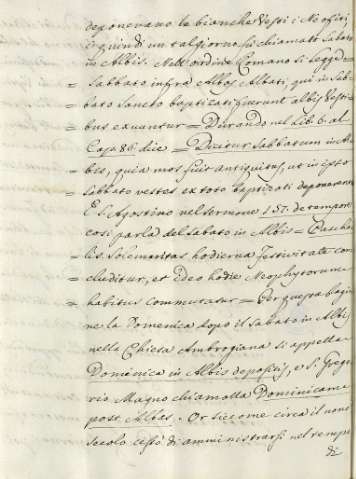 deponevano le bianche Vesti i Neofiti,
e quindi un tal giorno si chiamato Sabato
in Albis. Nell'ordine Romano si legge =
= Sabbato infra Albas Albati, qui in Sab-
= bato Sancto baptizati fuerunt albis Vesti-
= bus exuantur = Durando nel Lib. 6. al
Cap. 86. dice = Dicitur Sabbatum in Al-
= bis, quia mos fuit antiquitus, ut in isto
= Sabbato vestes ex toto baptizati deponerent
E S. Agostino nel sermone 157. de tempore
così parla del Sabato in Albis = Pascha-
= lis Solemnitas hodierna festivitate con-
= cluditur, et ideo hodie Neophytorum
= habitus commutatur = Per questa ragio
ne la Domenica dopo il Sabato in Albis
nella Chiesa Ambrogiana si appella
Domenica in Albis depositis, e S. Grego
rio Magno chiamolla Dominicam
post Albas. Or siccome circa il nono
secolo cessò di amministrarsi nel tempo
di